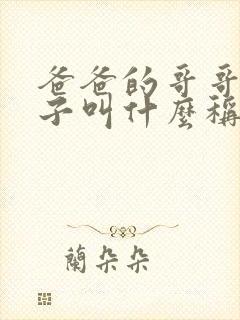 爸爸的哥哥
子叫什麼稱
蘭朵朵